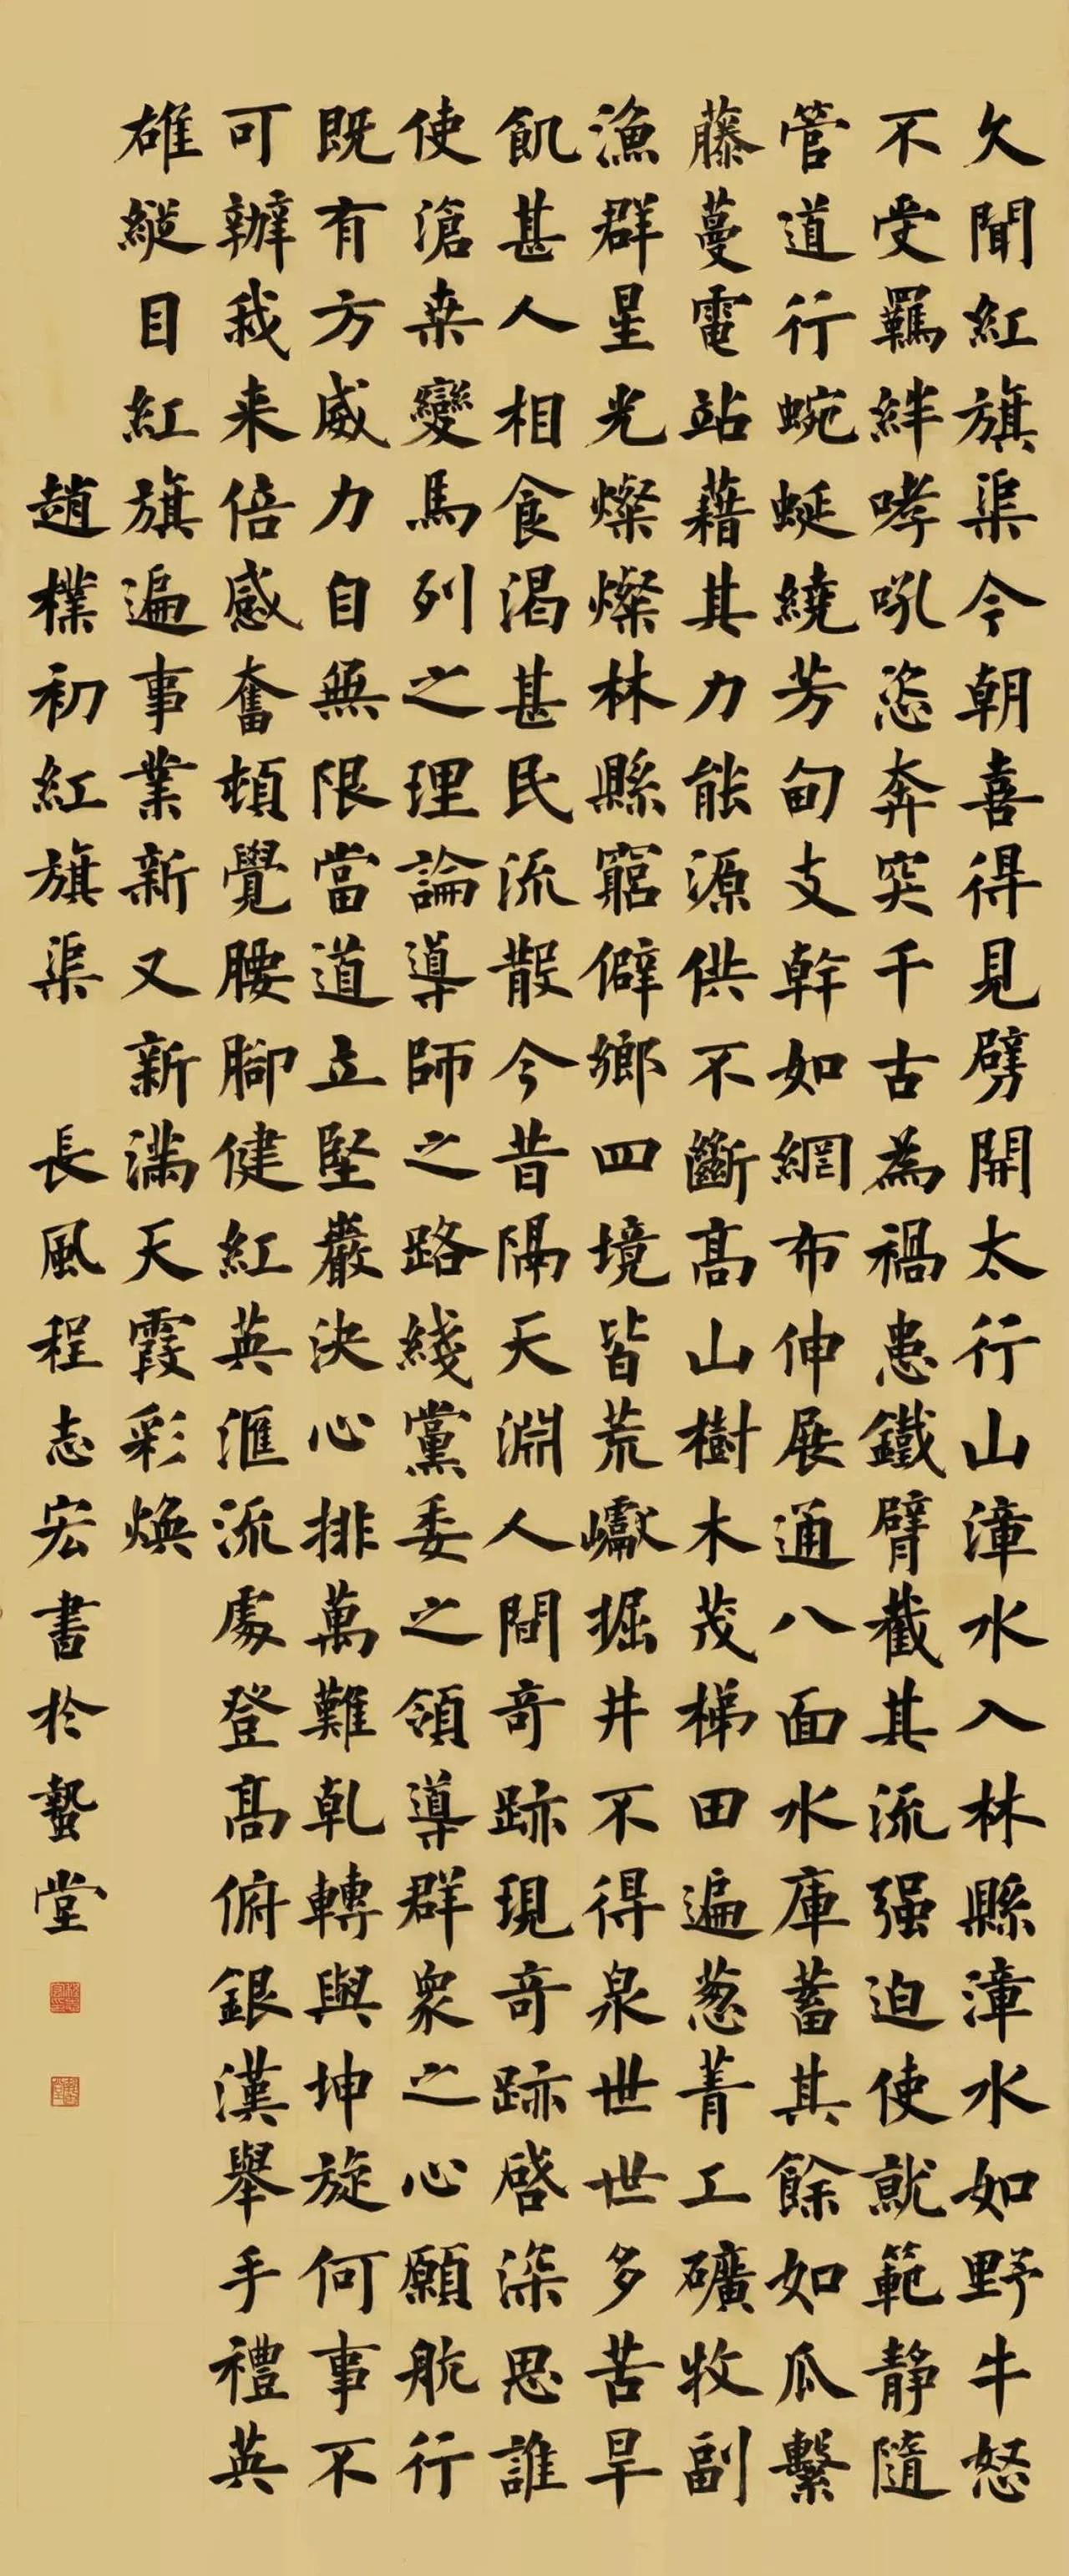 久聞紅旗渠今朝喜得見劈開太行山漳水入林縣漳水如野牛怒
不受羈絆哮吼恣奔突千古為禍患鐵臂截其流强迫使就範靜隨
管道行蜿蜒繞芳甸支幹如網布伸展通八面水庫蓄其餘如瓜繫
藤蔓電站藉其力能源供不斷高山樹木茂梯田遍葱菁工礦牧副
漁群星光燦燦林縣窮僻鄉四境皆荒巘掘井不得泉世世多苦旱
飢甚人相食渴甚民流散今昔隔天淵人間奇跡現奇跡啓深思誰
使滄桒變馬列之理論導師之路綫黨委之領導群衆之心願航行
既有方威力自無限當道立堅巖決心排萬難乹轉與坤旋何事不
可辦我来倍感奮頓覺腰腳健紅英滙流處登高俯銀漢舉手禮英
雄縱目紅旗遍事業新又新滿天霞彩煥
趙樸初紅旗渠 長風程志宏書於蟄堂